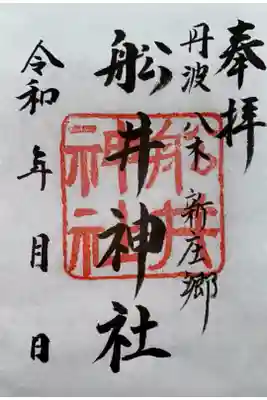 奉拝
丹波 八木 新庄郷
船井神社
令和 年 月 日
船井
神社